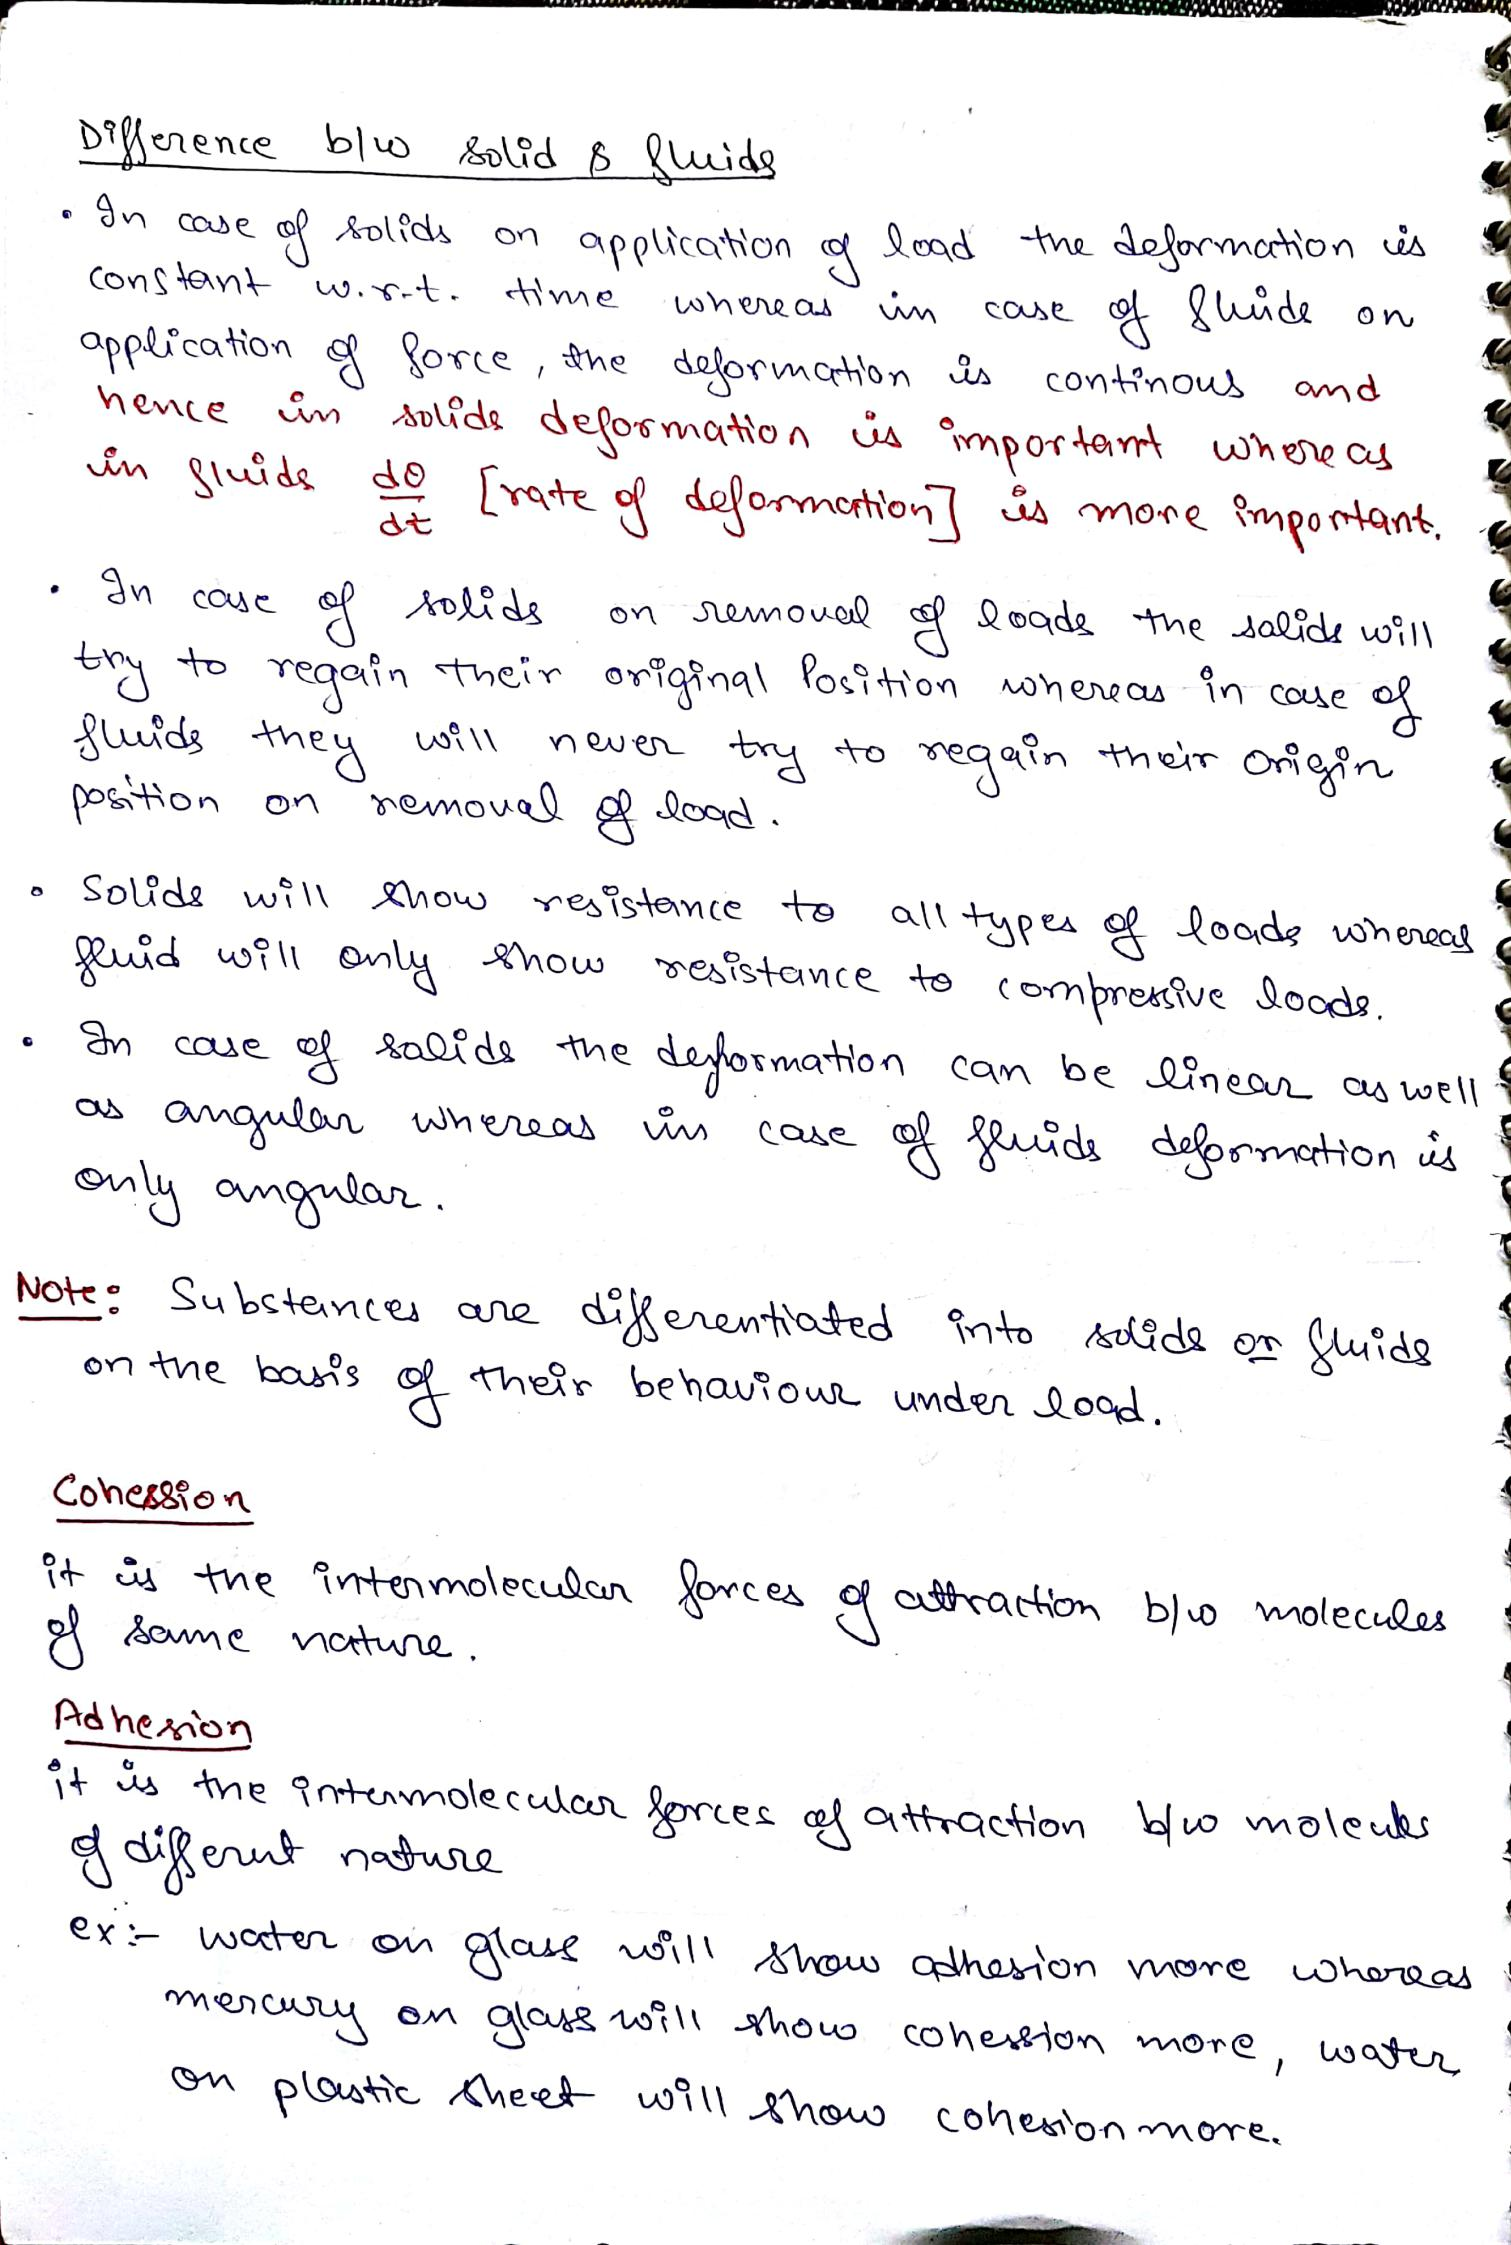 Difference b/w solid & fluids
• In case of solids on application of load the deformation is
constant w.r.t. time whereas in case of fluids on
application of force, the deformation is continous and
hence in solids deformation is important whereas
in fluids dθ/dt [rate of deformation] is more important.
• In case of solids on removal of loads the solids will
try to regain their original Position whereas in case of
fluids they will never try to regain their origin
position on removal of load.
• Solids will show resistance to all types of loads whereas
fluid will only show resistance to compressive loads.
• In case of solids the deformation can be linear as well
as angular whereas in case of fluids deformation is
only angular.
Note: Substances are differentiated into solids or fluids
on the basis of their behaviour under load.
Cohession
it is the intermolecular forces of attraction b/w molecules
of same nature.
Adhesion
it is the intermolecular forces of attraction b/w moleculs
of different nature
ex:- water on glass will show adhesion more whereas
mercury on glass will show cohession more, water
on plastic sheet will show cohesion more.